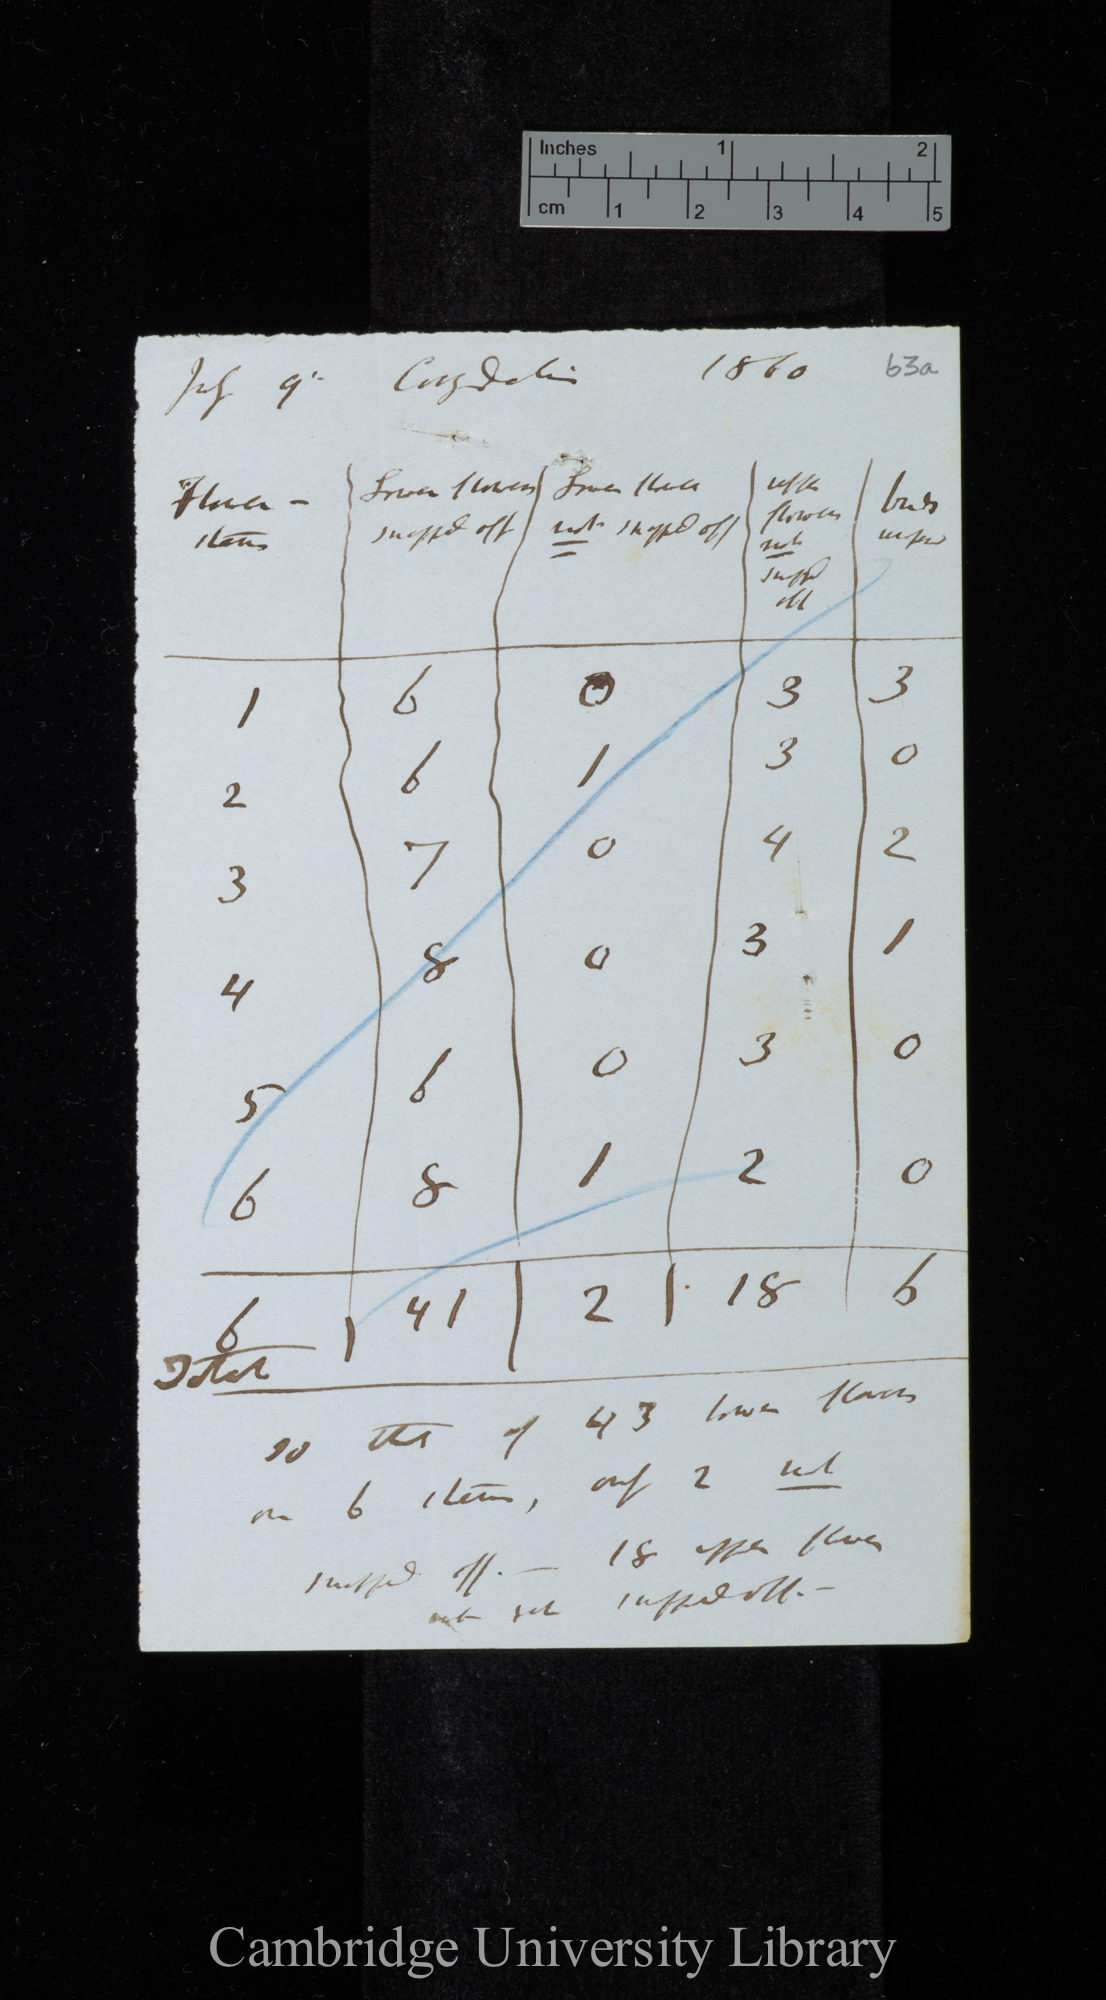 Inches 1 2
cm 1 2 3 4 5
July 9th Corydalis 1860 63a
Flower - | Lower flowers | Lower flowers | upper | buds
stems | snapped off | not snapped off | flowers
not
snapped
off
1 6 0 3 3
2 6 1 3 0
3 7 0 4 2
4 8 0 3 1
5 6 0 3 0
6 8 1 2 0
6 41 2 18 6
Total
so that of 43 lower flowers
on 6 stems, only 2 not
snapped off. — 18 upper flowers
not yet snapped off. —
Cambridge University Library